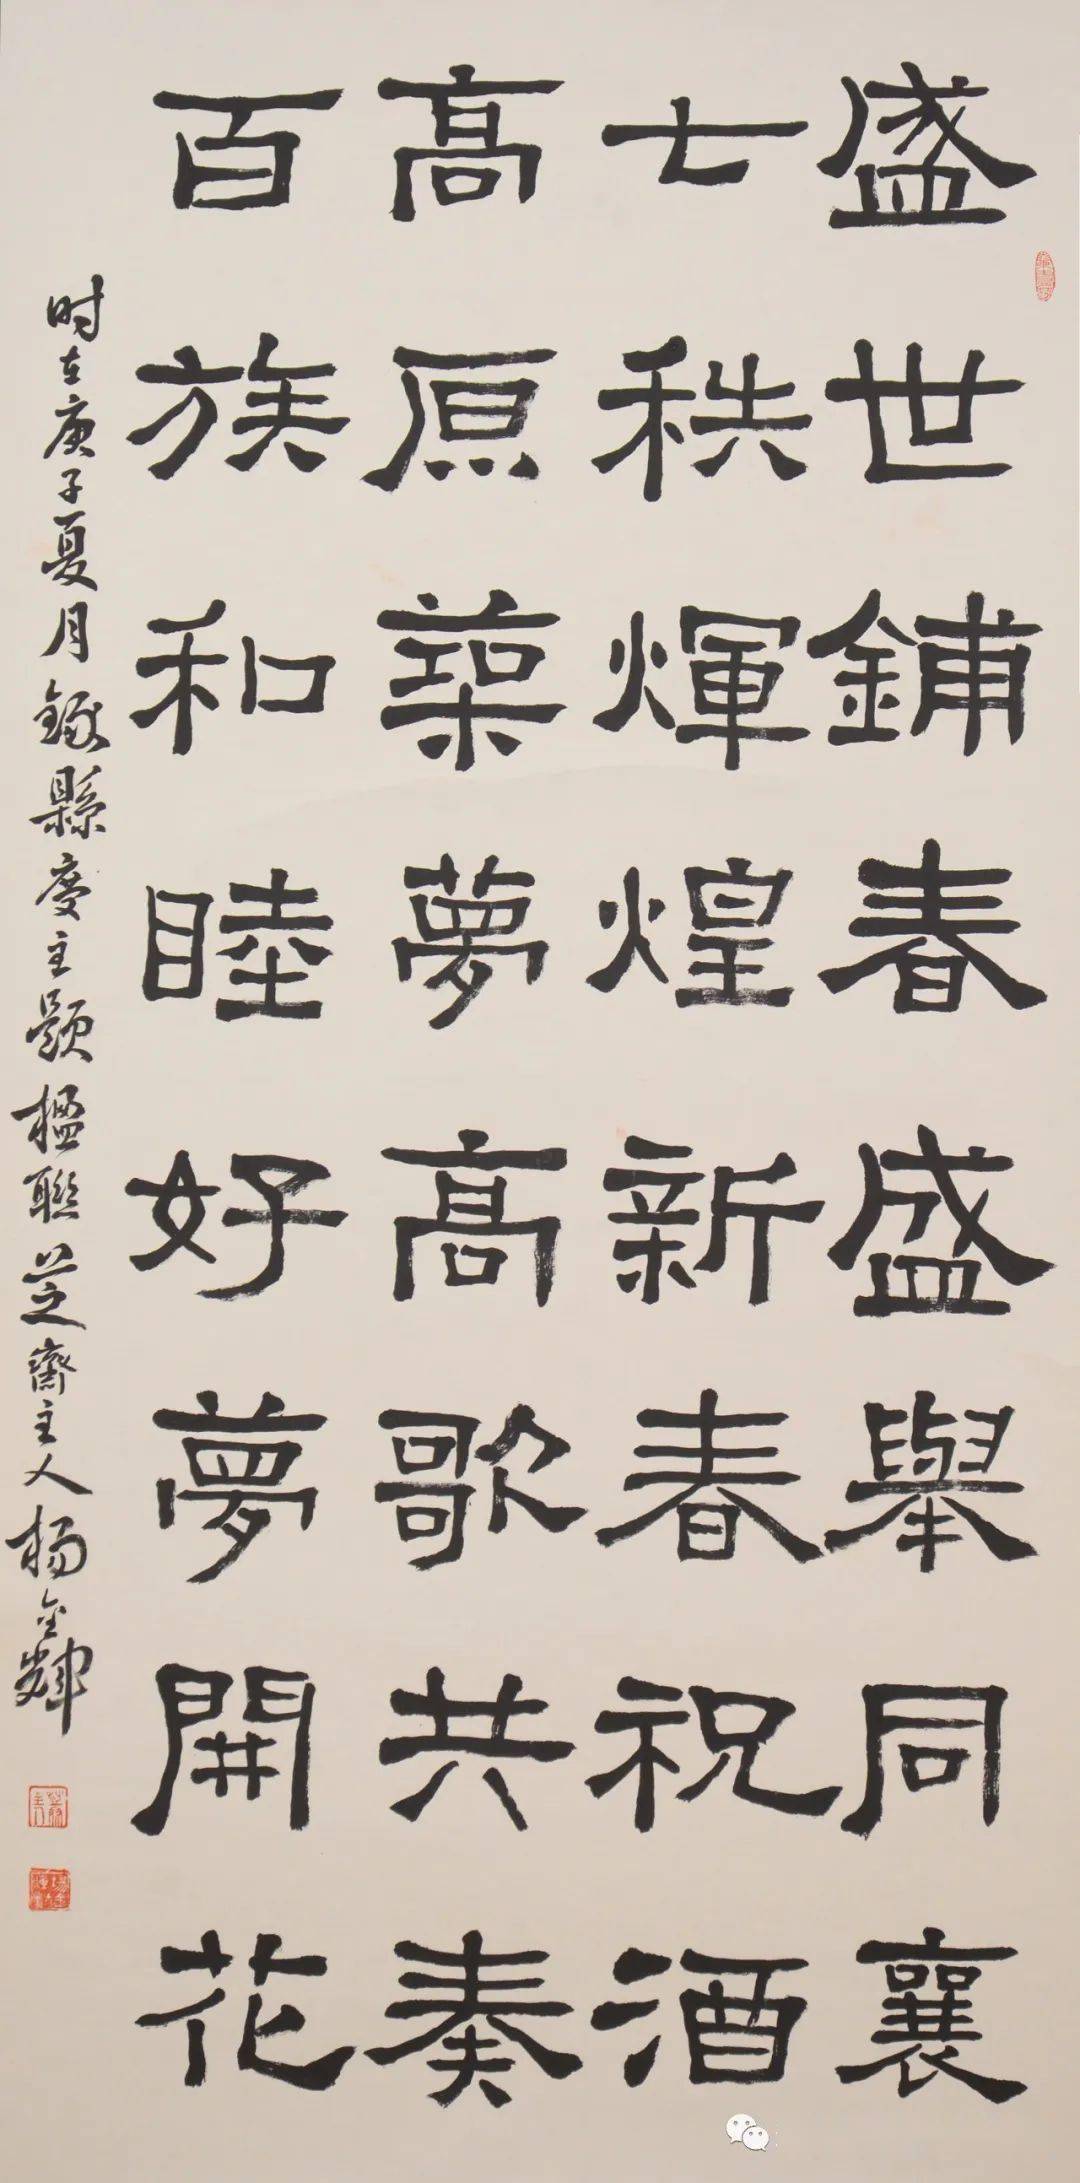 盛世鋪春盛舉同襄
七秩輝煌新春祝酒
高原築夢高歌共奏
百族和睦好夢開花
时在庚子夏月錄縣慶主题楹聯芝齋主人杨金輝